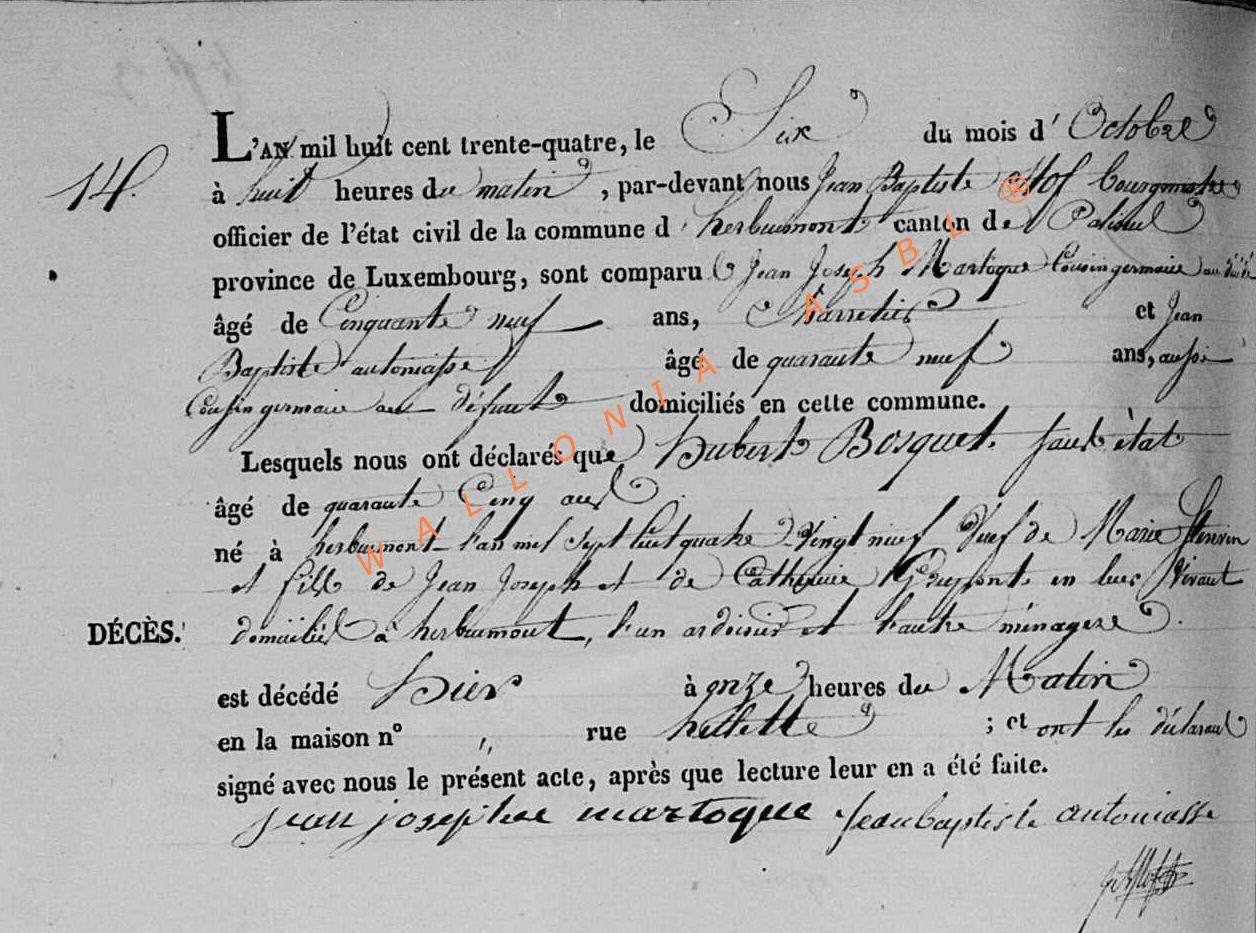 L'AN mil huit cent trente-quatre, le Six du mois d' Octobre
14.
à huit heures du matin, par-devant nous Jean Baptiste Hof bourgmestre
officier de l'état civil de la commune d' herbeumont canton de Paliseul
province de Luxembourg, sont comparu Jean Joseph Martoque Cousin germain au
âgé de Cinquante neuf ans, Charretier et Jean
Baptiste antoniasse âgé de quarante neuf ans, aussi
Cousin germain au défunt domiciliés en cette commune.
Lesquels nous ont déclarés que hubert Bosquet. sans état
âgé de quarante Cinq ans
né à herbeumont l'an mil Sept Cent quatre Vingt neuf Veuf de Marie
et fils de Jean Joseph et de Catherine en leur Vivant
DÉCÈS. domiciliés à herbeumont, l'un ardoisier et l'autre ménagere.
est décédé hier à onze heures du Matin
en la maison n° " rue ; et ont les déclarans
signé avec nous le présent acte, après que lecture leur en a été faite.
jean josephe martoque jean baptiste antoniasse
WALLONIA ASBL ®